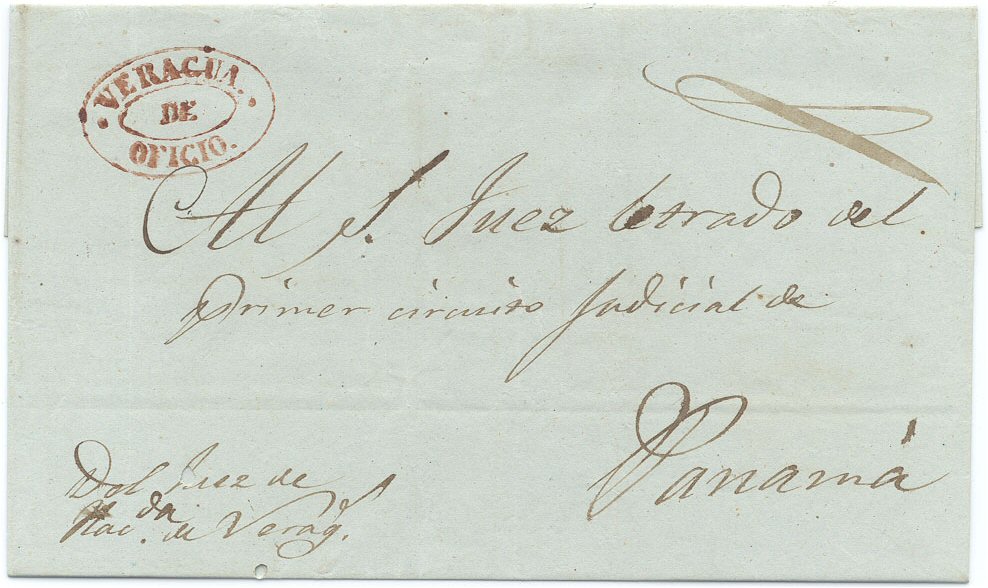 VERAGUA.
DE
OFICIO.
Al S. Juez letrado del
Primer circuito Judicial de
Panamá
Del Juez de
Hac.da de Verag.s